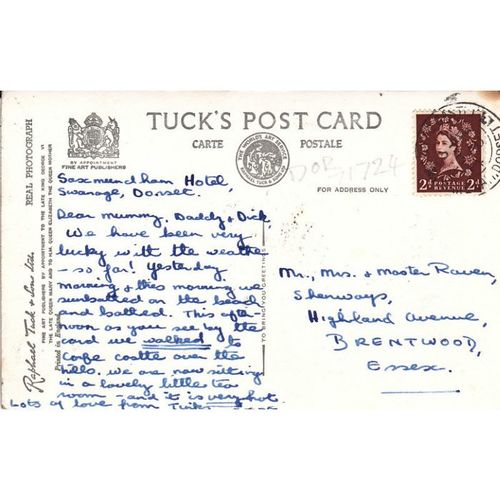 TUCK'S POST CARD
CARTE POSTALE
BY APPOINTMENT
FINE ART PUBLISHERS
FOR ADDRESS ONLY
DOR 1724
2d POSTAGE REVENUE 2d
REAL PHOTOGRAPH
Raphael Tuck & Sons Ltd.
FINE ART PUBLISHERS BY APPOINTMENT TO THE LATE KING GEORGE VI
THE LATE QUEEN MARY AND TO H.M. QUEEN ELIZABETH THE QUEEN MOTHER
Printed in England
TO BRING YOU GREETINGS
Hotel,
Swanage, Dorset.
Dear Mummy, Daddy & Dick,
We have been very
lucky with the weather
– so far! Yesterday
morning & this morning we
sunbathed on the
and bathed. This after-
noon as you see by the
card we walked to
Corfe castle over the
hills. We are now sitting
in a lovely little tea
room – and it is very hot
Lots of love from
Mr., Mrs. & Master Raven,
Shenways,
Highland Avenue,
BRENTWOOD,
Essex.